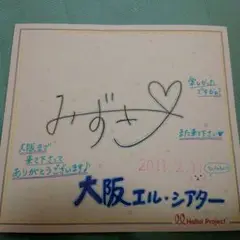 楽しかった
ですか?
みずき♡
また来て下さい♥
大阪まで
来て下さって
ありがとうございます♪
2011.2.11
大阪エル・シアター
Hello! Project